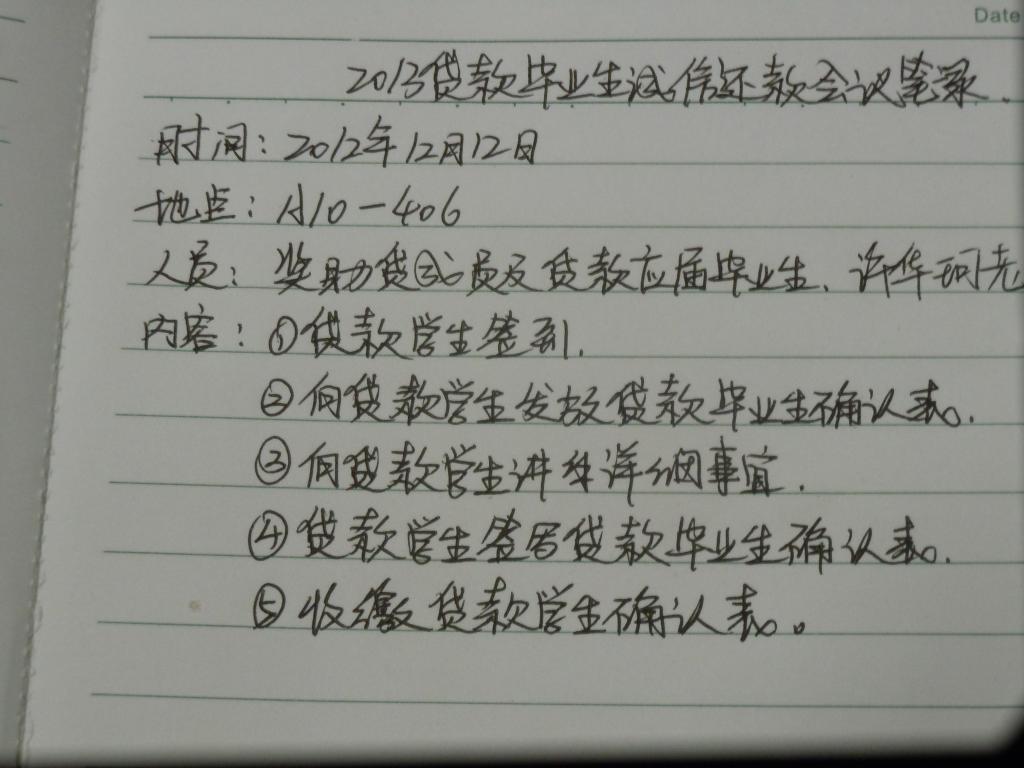 Date
2013贷款毕业生诚信还款会议笔录.
时间：2012年12月12日
地点：A10-406
人员：奖助贷成员及贷款应届毕业生、许华珂
内容：①贷款学生签到.
②向贷款学生发放贷款毕业生确认表.
③向贷款学生讲解详细事宜.
④贷款学生签署贷款毕业生确认表.
⑤收缴贷款学生确认表。